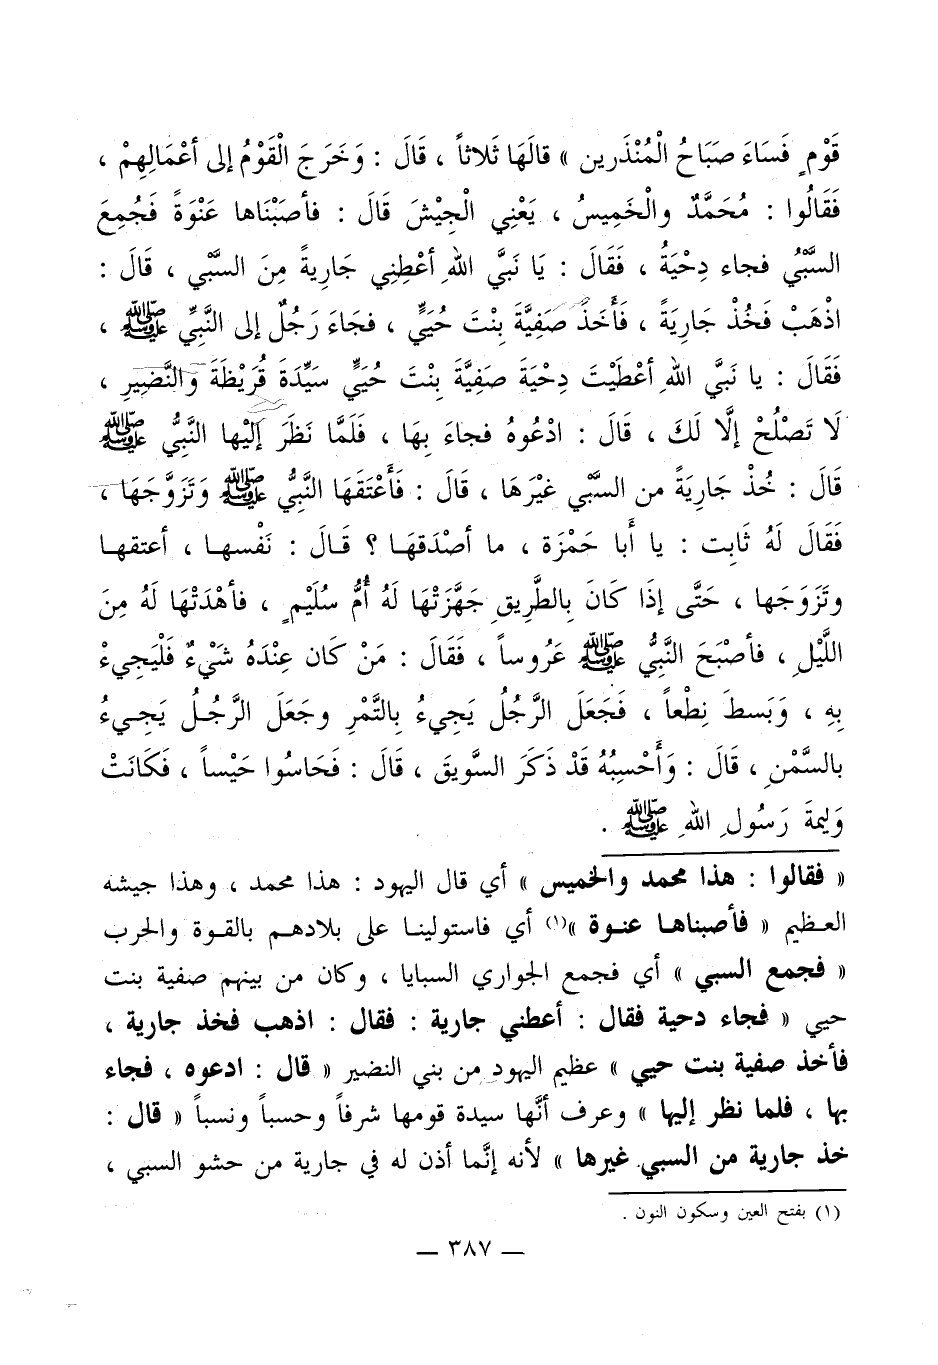 قَوْمٍ فَسَاءَ صَبَاحُ الْمُنْذَرِين » قالَهَا ثَلاثاً ، قَالَ : وَخَرَجَ الْقَوْمُ إلى أعْمَالِهِمْ ،
فَقَالُوا : مُحَمَّدٌ والْخَمِيسُ ، يَعْنِي الْجِيْشَ قَالَ : فأصَبْنَاها عَنْوَةً فَجُمِعَ
السَّبْيُ فجاء دِحْيَةُ ، فَقَالَ : يَا نَبيَّ اللهِ أعْطِنِي جَارِيةً مِنَ السَّبْي ، قَالَ :
اذْهَبْ فَخُذْ جَارِيَةً ، فَأَخَذَ صَفِيَّةَ بِنْتَ حُيَيٍّ ، فجَاءَ رَجُلٌ إلى النَّبِيِّ ﷺ ،
فَقَالَ : يا نَبيَّ اللهِ أعْطَيْتَ دِحْيَةَ صَفِيَّةَ بِنْتَ حُيَيٍّ سَيِّدَةَ قُرَيْظَةَ وَالنَّضِيرِ ،
لَا تَصْلُحْ إلَّا لَكَ ، قَالَ : ادْعُوهُ فجاءَ بِهَا ، فَلَمَّا نَظَرَ إلَيْها النَّبيُّ ﷺ
قَالَ : خُذْ جَارِيَةً من السَّبْي غيْرَهَا ، قَالَ : فَأَعْتَقَهَا النَّبيُّ ﷺ وَتَزَوَّجَهَا ،
فَقَالَ لَهُ ثَابِت : يا أَبا حَمْزَة ، ما أصْدَقَهَا ؟ قَالَ : نَفْسها ، أعتقها
وتَزَوَجَها ، حَتَّى إذَا كَانَ بِالطَّرِيقِ جَهَّزَتْهَا لَهُ أُمُّ سُلَيْمٍ ، فأهْدَتْهَا لَهُ مِنَ
اللَّيْلِ ، فأصْبَحَ النَّبيُّ ﷺ عَرُوساً ، فَقَالَ : مَنْ كَان عِنْدَهُ شَيْءٌ فَلْيَجِيءْ
بِهِ ، وَبَسطَ نِطْعاً ، فَجَعَلَ الرَّجُلُ يَجِيءُ بِالتَّمْرِ وجَعَلَ الرَّجُلُ يَجِيءُ
بالسَّمْنِ ، قَالَ : وَأَحْسِبُهُ قَدْ ذَكَرَ السَّويقَ ، قَالَ : فَحَاسُوا حَيْساً ، فَكَانَتْ
وَلِيمَةَ رَسُولِ اللهِ ﷺ .
« فقالوا : هذا محمد والخميس » أي قال اليهود : هذا محمد ، وهذا جيشه
العظيم « فأصبناها عنوة »(١) أي فاستولينا على بلادهم بالقوة والحرب
« فجمع السبي » أي فجمع الجواري السبايا ، وكان من بينهم صفية بنت
حيي « فجاء دحية فقال : أعطني جارية : فقال : اذهب فخذ جارية ،
فأخذ صفية بنت حيي » عظيم اليهود من بني النضير « قال : ادعوه ، فجاء
بها ، فلما نظر إليها » وعرف أنَّها سيدة قومها شرفاً وحسباً ونسباً « قال :
خذ جارية من السبي غيرها » لأنه إنَّما أذن له في جارية من حشو السبي ،
(١) بفتح العين وسكون النون .
— ٣٨٧ —